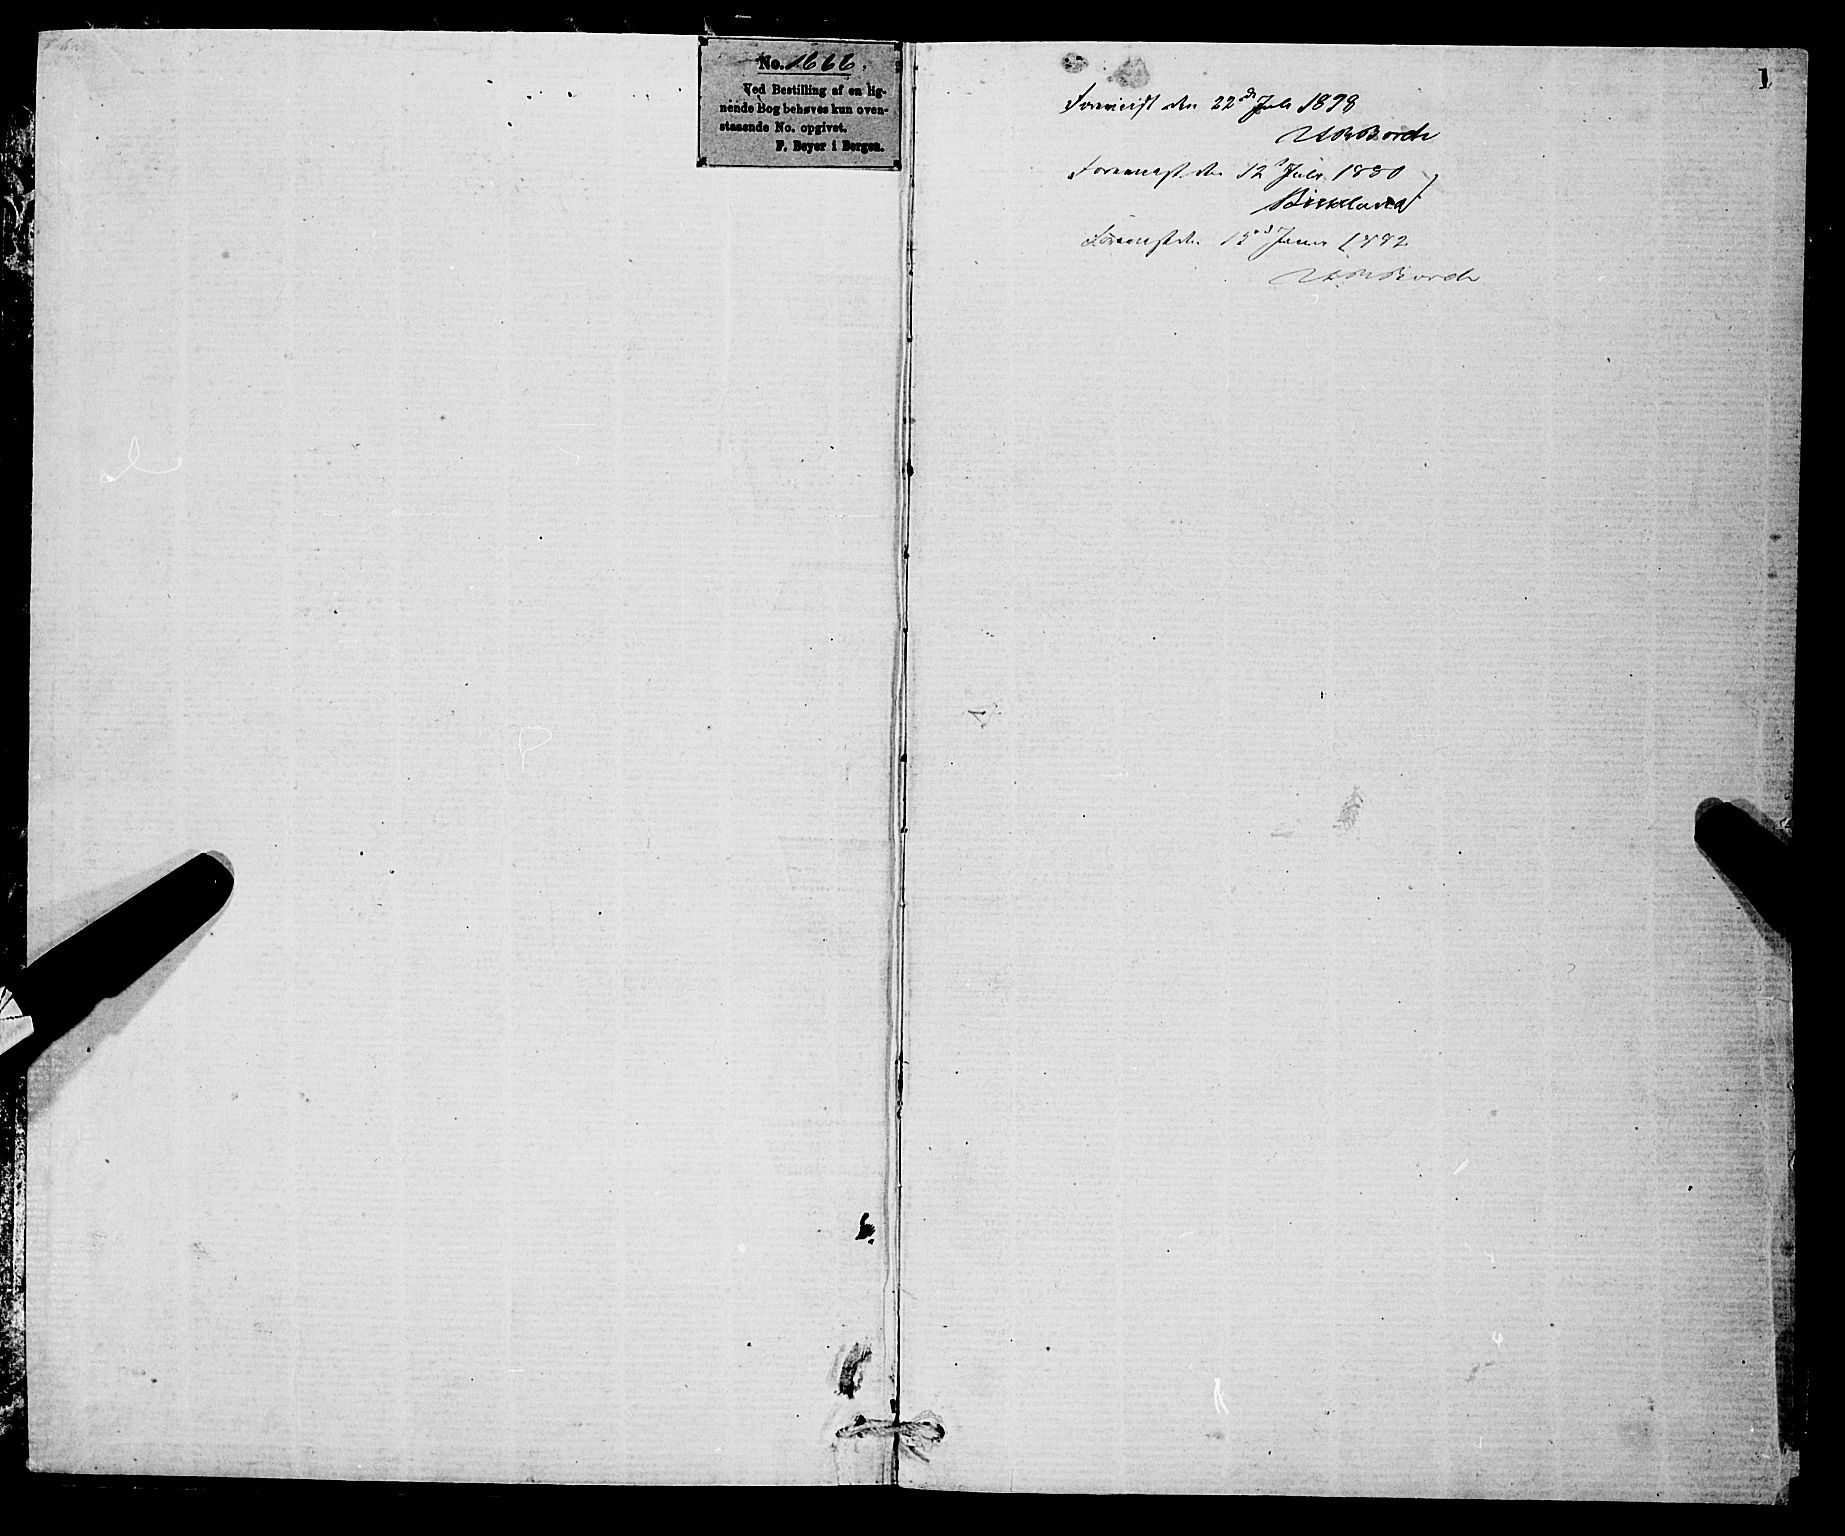 No. 1666.
Ved Bestilling af en lig-
nende Bog behøves kun oven-
staaende No. opgivet.
F. Beyer i Bergen.
1
Forevist den 22de Juli 1878
Forevist den 12 Juli 1880
Birkeland
Forevist den 15 1882